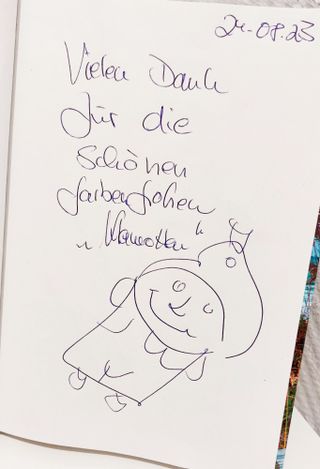 24.08.23
Vielen Dank
für die
schönen
farbenfrohen